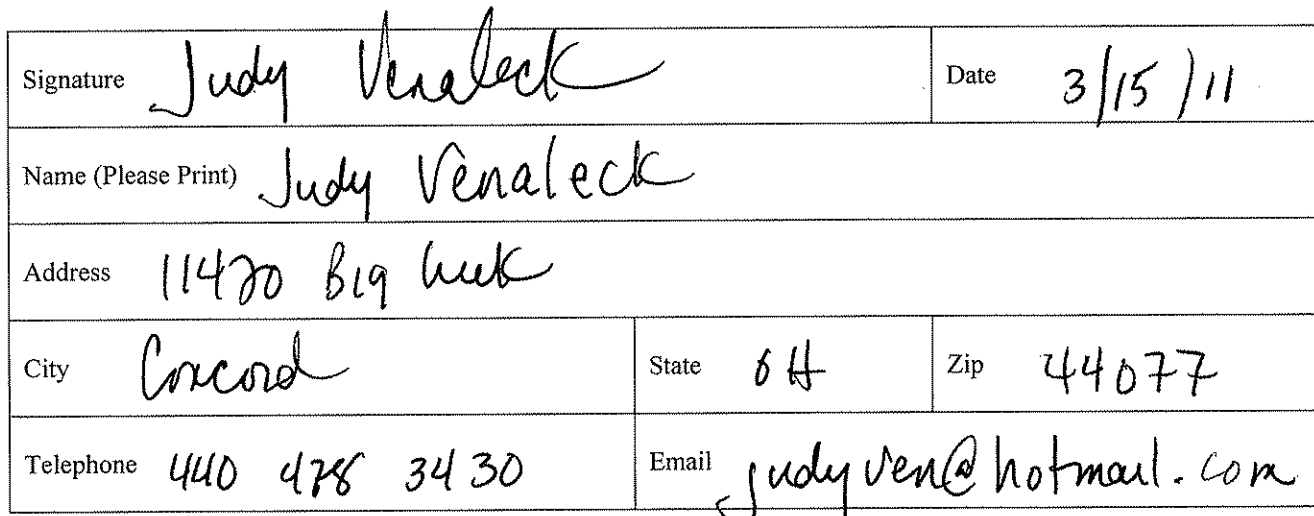 Signature Judy Venaleck Date 3/15/11
Name (Please Print) Judy Venaleck
Address 11420 Big Creek
City Concord State OH Zip 44077
Telephone 440 478 3430 Email judyven@hotmail.com